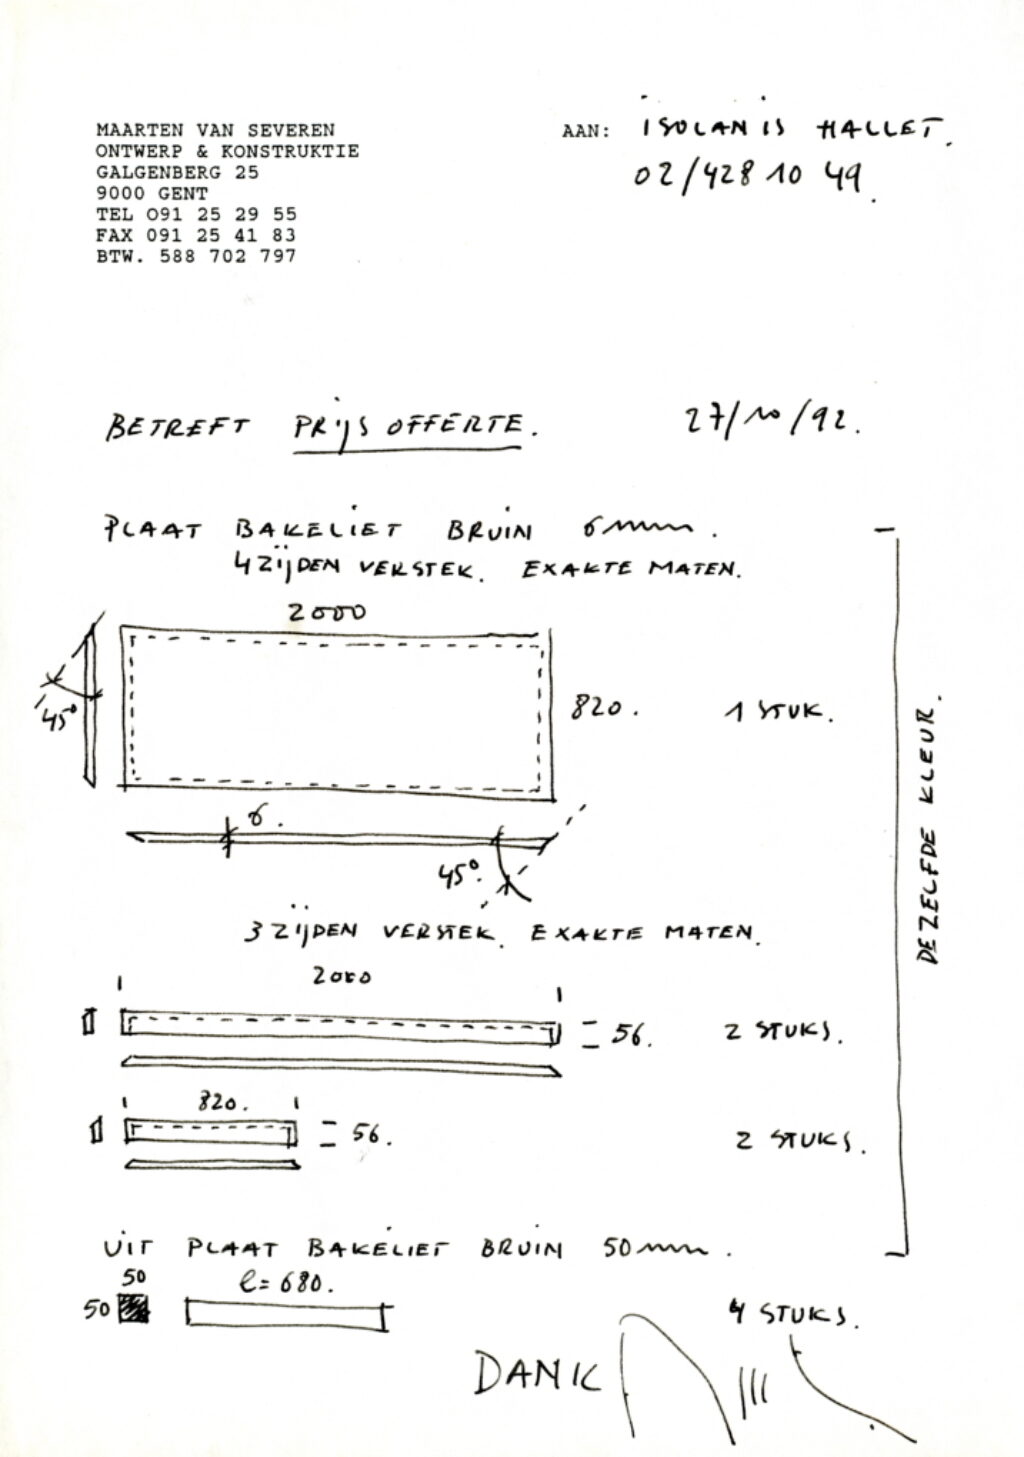 MAARTEN VAN SEVEREN
ONTWERP & KONSTRUKTIE
GALGENBERG 25
9000 GENT
TEL O91 25 29 55
FAX 091 25 41 83
BTW. 588 702 797
AAN: ISOLANIS HALLET.
02/428 10 49.
BETREFT PRIJS OFFERTE. 27/10/92.
PLAAT BAKELIET BRUIN 6mm.
4 ZIJDEN VERSTEK. EXAKTE MATEN.
2000
45°
820. 1 STUK.
6.
45°.
3 ZIJDEN VERSTEK. EXAKTE MATEN.
2000
56. 2 STUKS.
820.
56. 2 STUKS.
DEZELFDE KLEUR.
UIT PLAAT BAKELIET BRUIN 50mm.
50 l=680.
50 4 STUKS.
DANK